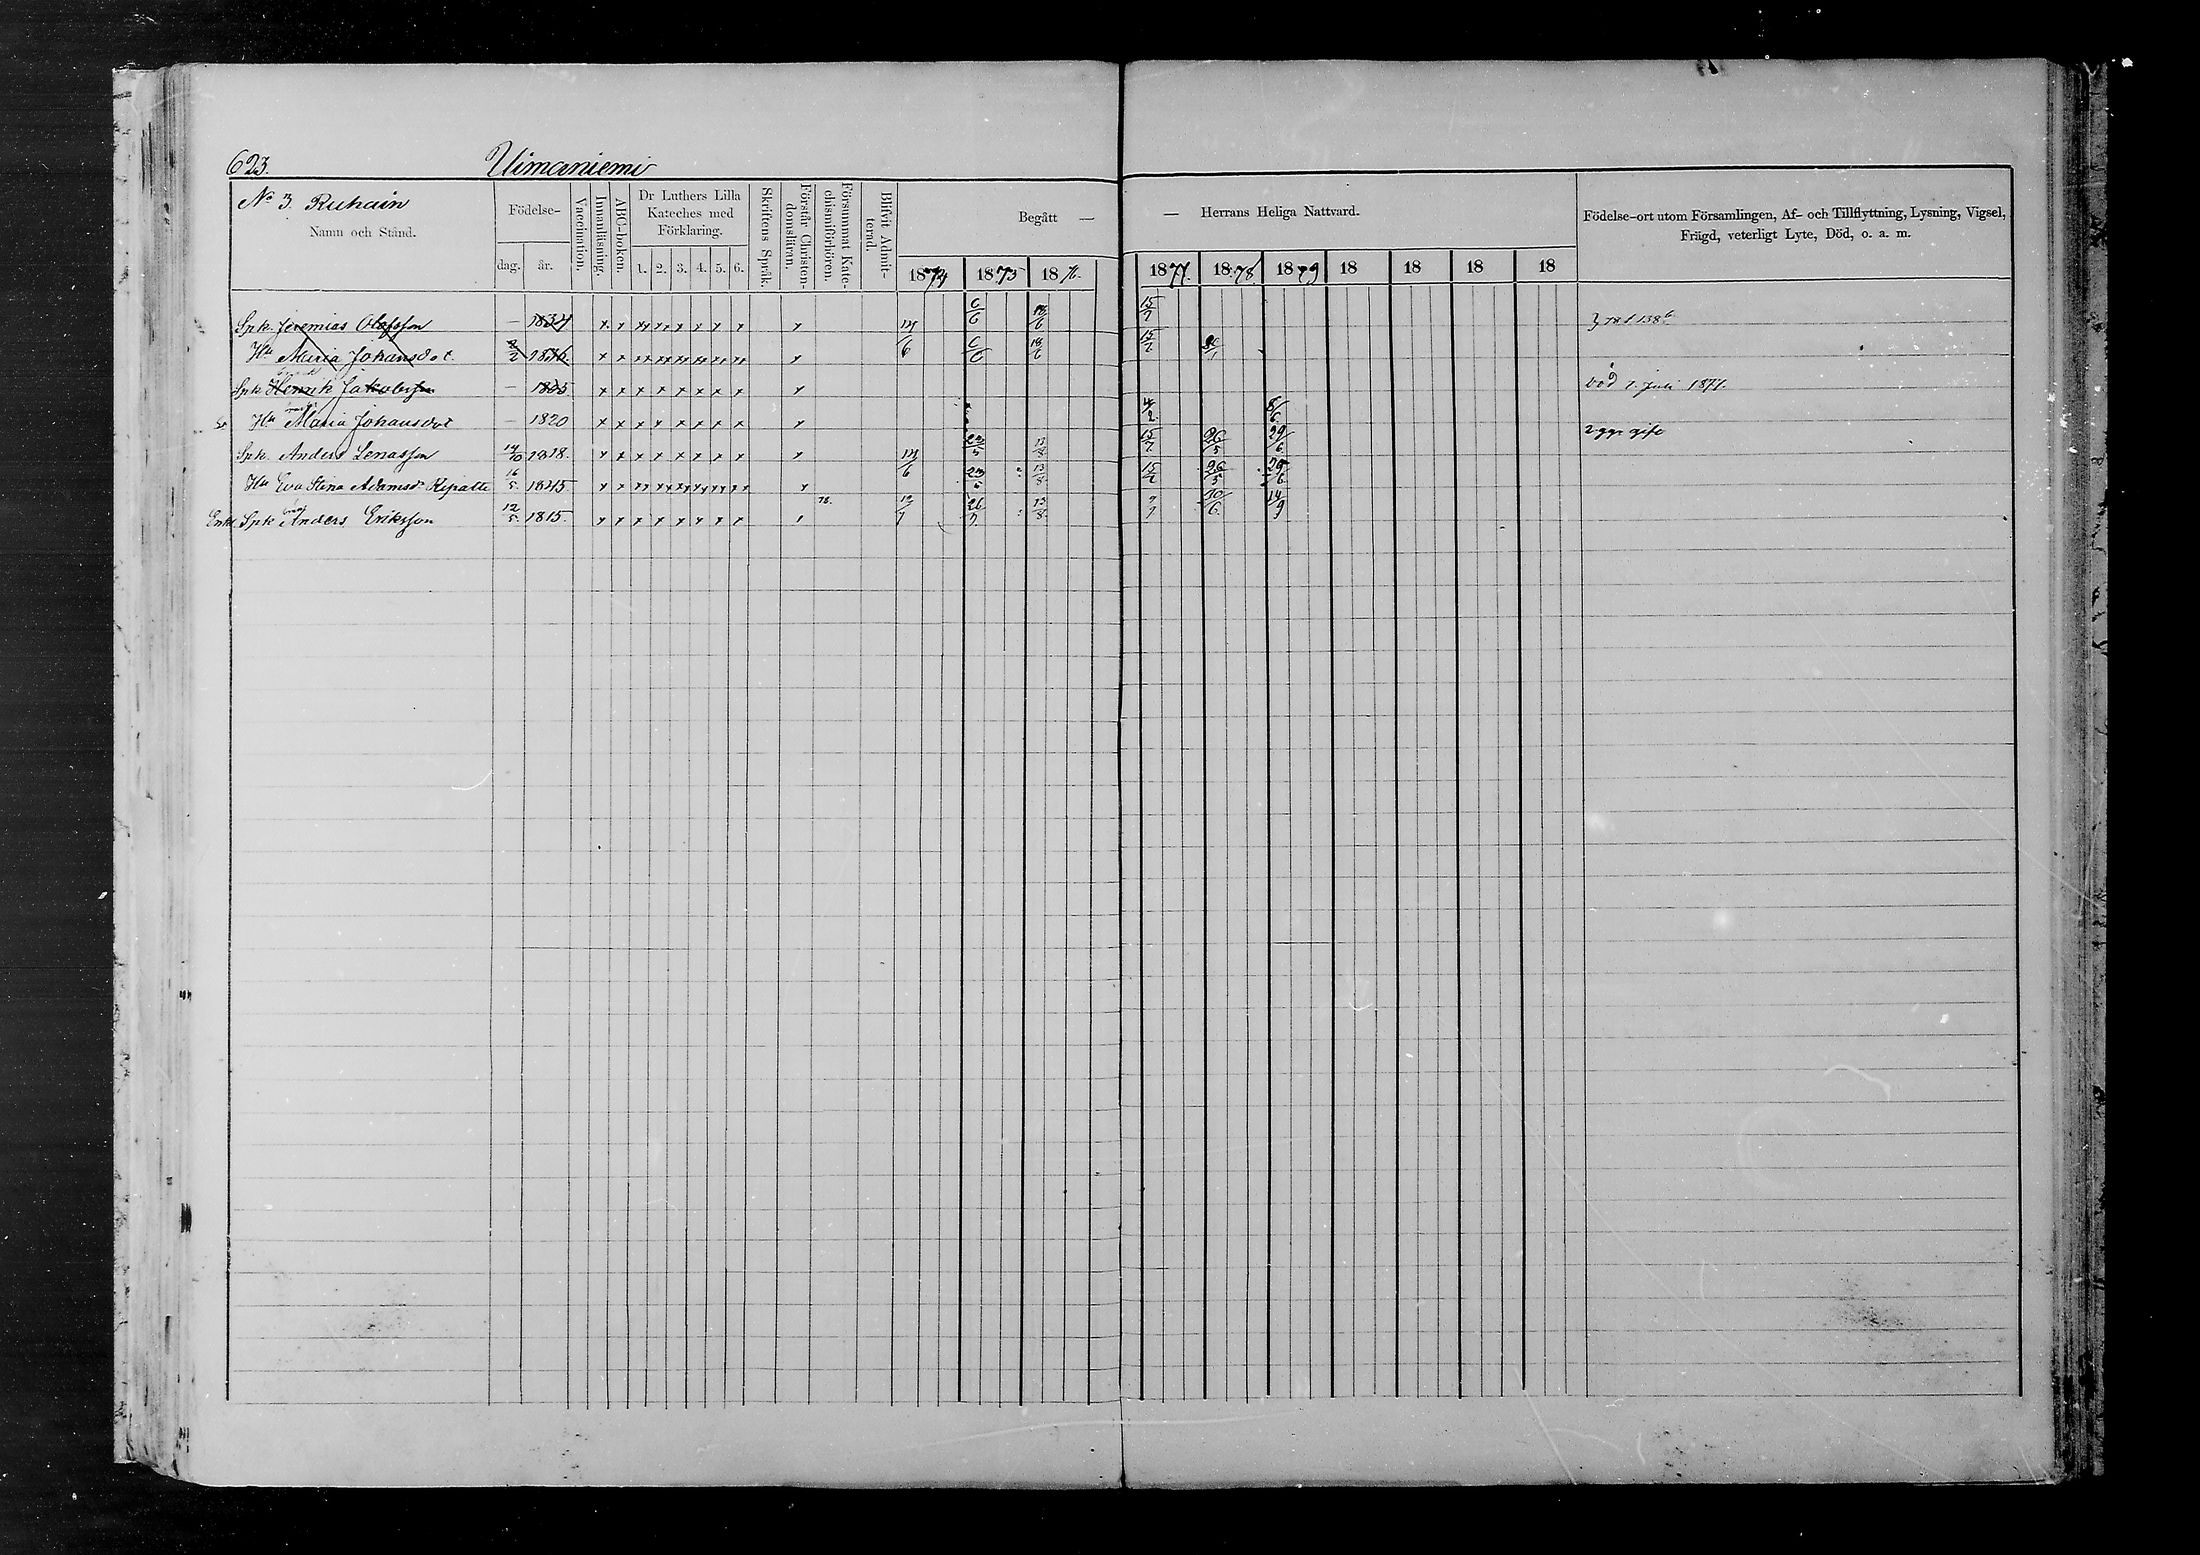 623.
Uimaniemi
No 3. Ruhain
Namn och Stånd.
Födelse-
dag. år.
Vaccination.
Innanläsning.
ABC-boken.
Dr Luthers Lilla Kateches med Förklaring.
1. 2. 3. 4. 5. 6.
Skriftens Språk.
Förstår Christendomsläran.
Försummat Katechismiförhören.
Blifvit Admitterad.
Begått — — Herrans Heliga Nattvard.
1874 1875 1876. 1877. 1878. 1879 18 18 18 18
Födelse-ort utom Församlingen, Af- och Tillflyttning, Lysning, Vigsel,
Frägd, veterligt Lyte, Död, o. a. m.
Spk. Jeremias Olofsson — 1834 x x x x x x x x x 6/6 18/6 15/7
Hu Maria Johansdot 2/2 18 x x x x x x x x x 6/6 18/6 15/7
Spk Henrik Jakobsson — x x x x x x x x x död 1. Juli 1877.
Hu Maria Johansdot — 1820 x x x x x x x x x 8/6 2 ggr gift
Spk. Anders Lenasson 14/10 1818. x x x x x x x x x 23/5 13/8 15/7 26/5 29/6
Hu Eva Stina Adamsdr Kepatte 16/5 1845 x x x x x x x x x 13/8 26/5 29/6
Enkl. Spk Anders Eriksson 12/5 1815. x x x x x x x x x 78. 26/7 13/8 10/6 14/9